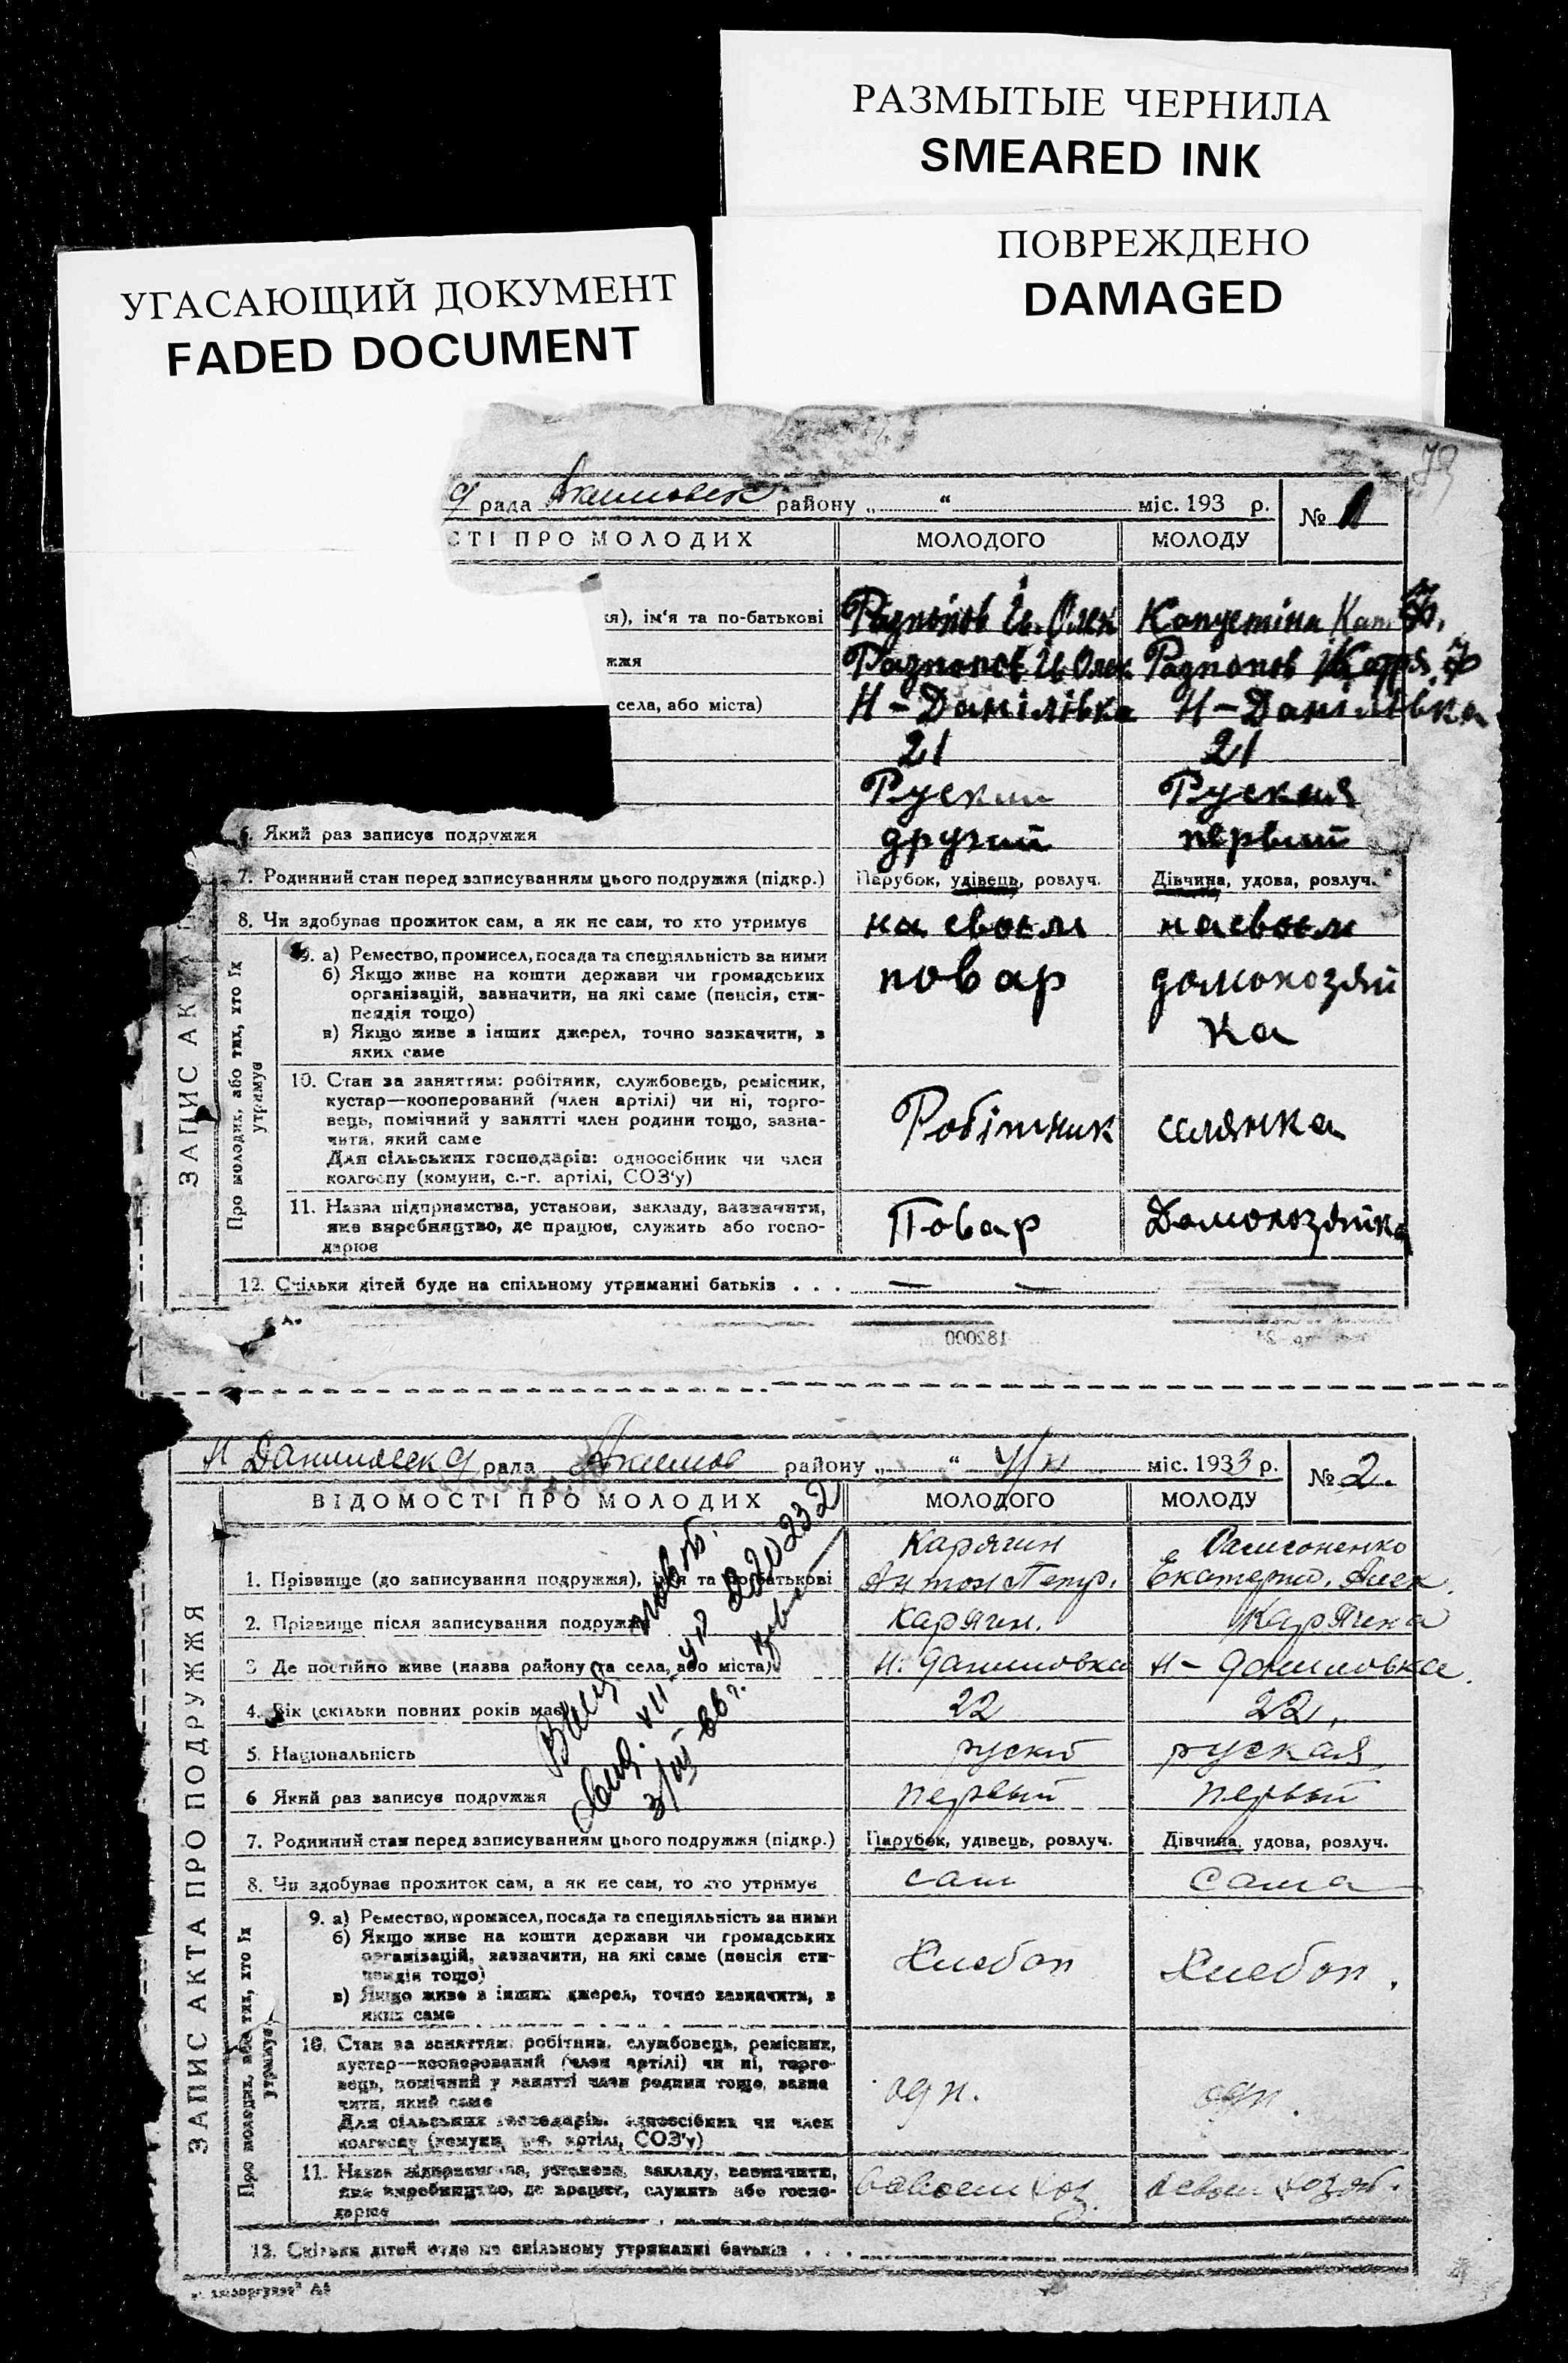 РАЗМЫТЫЕ ЧЕРНИЛА
SMEARED INK
ПОВРЕЖДЕНО
DAMAGED
УГАСАЮЩИЙ ДОКУМЕНТ
FADED DOCUMENT
рада Акимовск району „ “ міс. 193 р. №
СТІ ПРО МОЛОДИХ МОЛОДОГО МОЛОДУ
ім'я та по-батькові Капустіна
села, або міста) Н-Данілівка Н-Данілівка
21 21
Руский Руская
6. Який раз записує подружжя другий первый
7. Родинний стан перед записуванням цього подружжя (підкр.) Парубок, удівець, розлуч. Дівчина, удова, розлуч.
8. Чи здобував прожиток сам, а як не сам, то хто утримує на своем на своем
ЗАПИС АКТ
Про молодих, або тих, хто їх утримує
9. а) Ремество, промисел, посада та спеціяльність за ними повар домохозяй
б) Якщо живе на кошти держави чи громадських ка
організацій, зазначити, на які саме (пенсія, сти-
пендія тощо)
в) Якщо живе з інших джерел, точно зазначити, з
яких саме
10. Стан за заняттям: робітник, службовець, ремісник,
кустар—кооперований (член артілі) чи ні, торго-
вець, помічний у занятті член родини тощо, зазна- Робітник селянка
чити, який саме
Для сільських господарів: одноосібник чи член
колгоспу (комуни, с.-г. артілі, СОЗ'у)
11. Назва підприємства, установи, закладу, зазначити,
яке виробництво, де працює, служить або госпо- Повар Домохозяйка
дарює
12. Скільки дітей буде на спільному утриманні батьків . . . — —
182000
Н Данилавск рада Акимов району „ “ міс. 1933 р. № 2.
ВІДОМОСТІ ПРО МОЛОДИХ МОЛОДОГО МОЛОДУ
Карягин
1. Прізвище (до записування подружжя), ім'я та по-батькові Антон Петр. Екатерин. Алек.
2. Прізвище після записування подружжя Карягин. Карягина
3 Де постійно живе (назва району та села, або міста) Н. Даниловка Н-Даниловка
4. Вік (скільки повних років має) 22 22,
5. Національність руский руская
6 Який раз записує подружжя первый первый
7. Родинний стан перед записуванням цього подружжя (підкр.) Парубок, удівець, розлуч. Дівчина, удова, розлуч.
8. Чи здобував прожиток сам, а як не сам, то хто утримує сам сама
ЗАПИС АКТА ПРО ПОДРУЖЖЯ
Про молодих, або тих, хто їх утримує
9. а) Ремество, промисел, посада та спеціяльність за ними
б) Якщо живе на кошти держави чи громадських
організацій, зазначити, на які саме (пенсія сти- Хлебоп Хлебоп.
пендія тощо)
в) Якщо живе з інших джерел, точно зазначити, з
яких саме
10. Стан за заняттям: робітник, службовець, ремісник,
кустар—кооперований (член артілі) чи ні, торго-
вець, помічний у занятті член родини тощо, зазна одн. одн.
чити, який саме
Для сільських господарів: одноосібник чи член
колгоспу (комуни, с.-г. артілі, СОЗ'у)
11. Назва підприємства, установи, закладу, зазначити,
яке виробництво, де працює, служить або госпо-
дарює
12. Скільки дітей буде на спільному утриманні батьків . . .